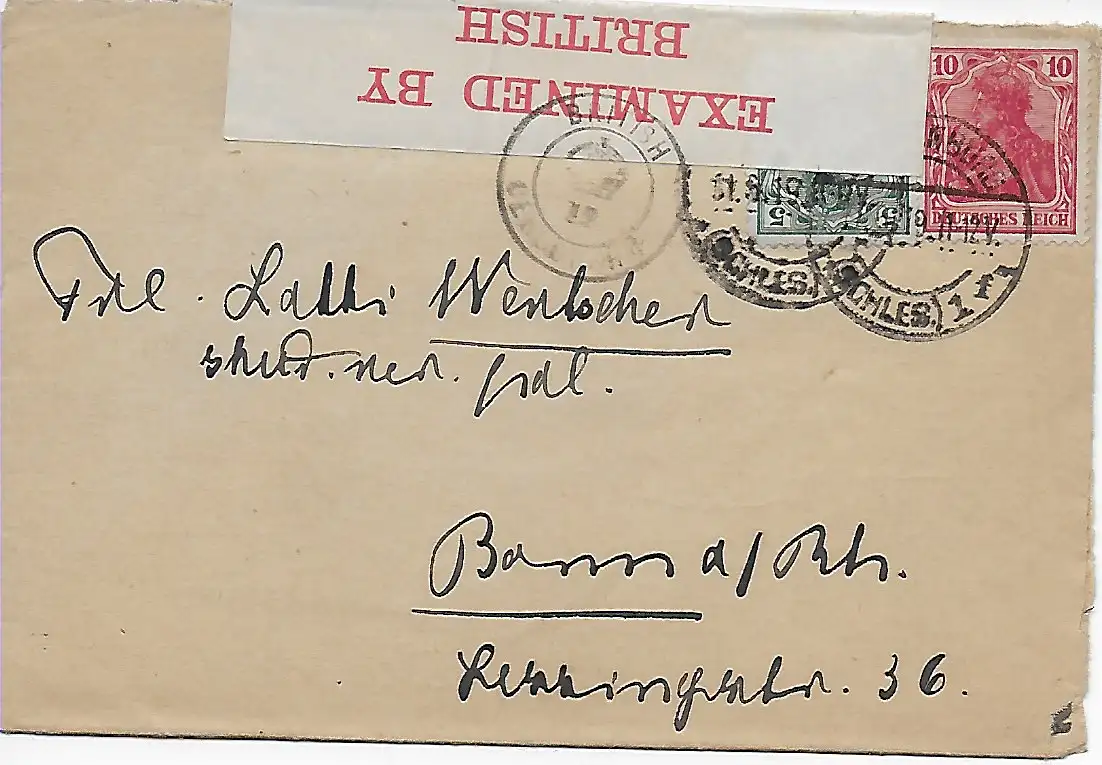 BRITISH
EXAMINED BY
10 10
DEUTSCHES REICH
BRITISH
5 5
(SCHLES.)
(SCHLES.) 1 f
Frl. Lotti Wentscher
stud. med. 
Bonn a/Rh.
Lessingstr. 36.